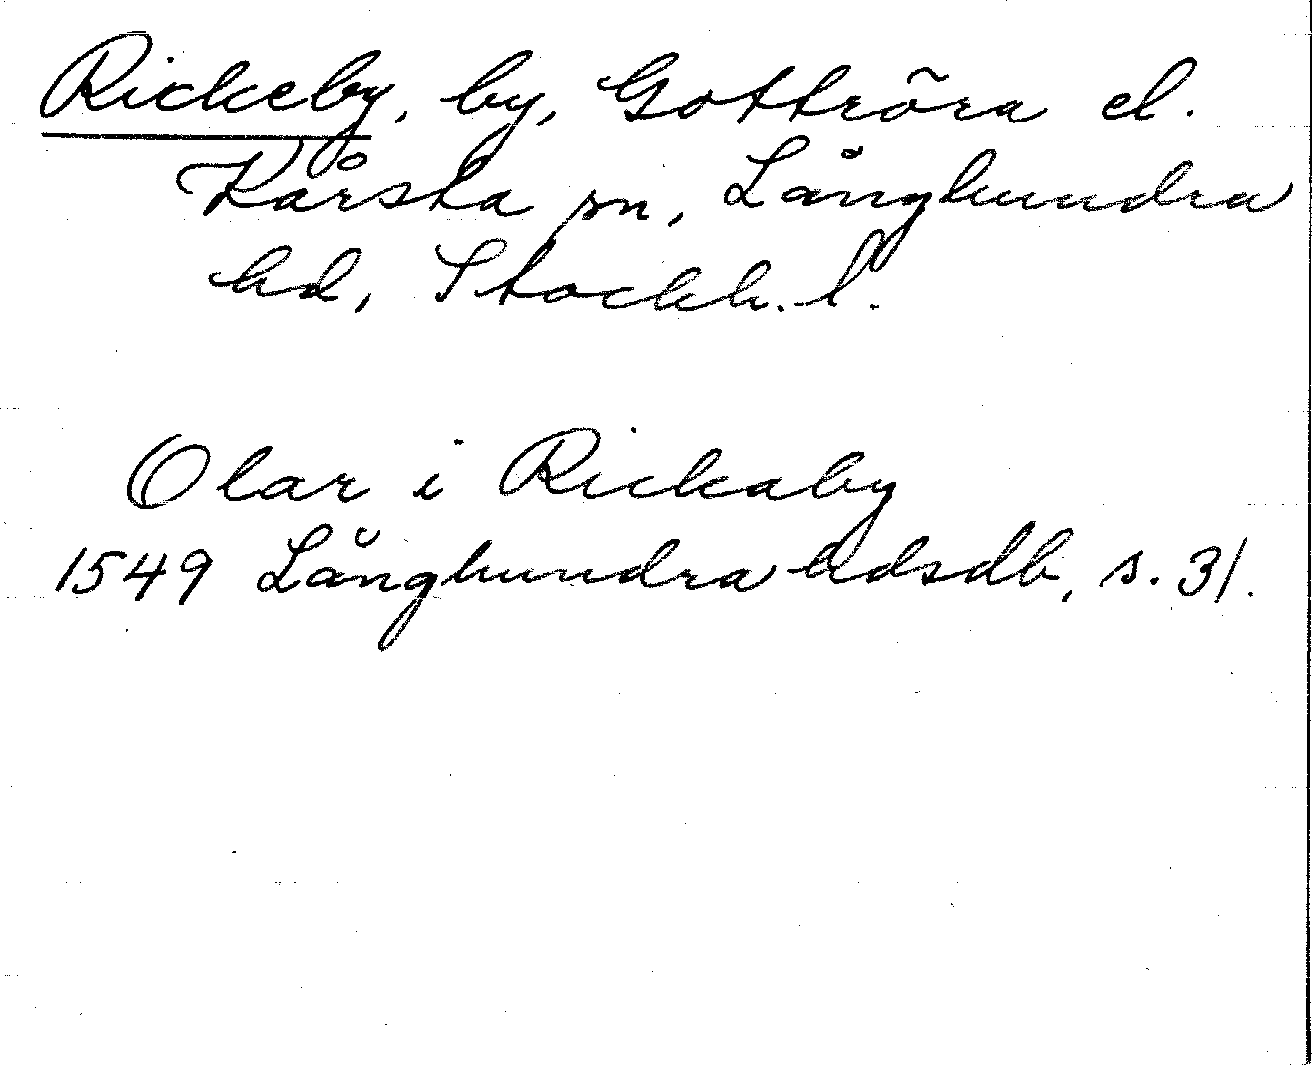 Rickeby, by, Gottröra el.
Kårsta sn, Långhundra
hd, Stockh. l.
Olar i Rickaby
1549 Långhundra hdsdb, s. 31.